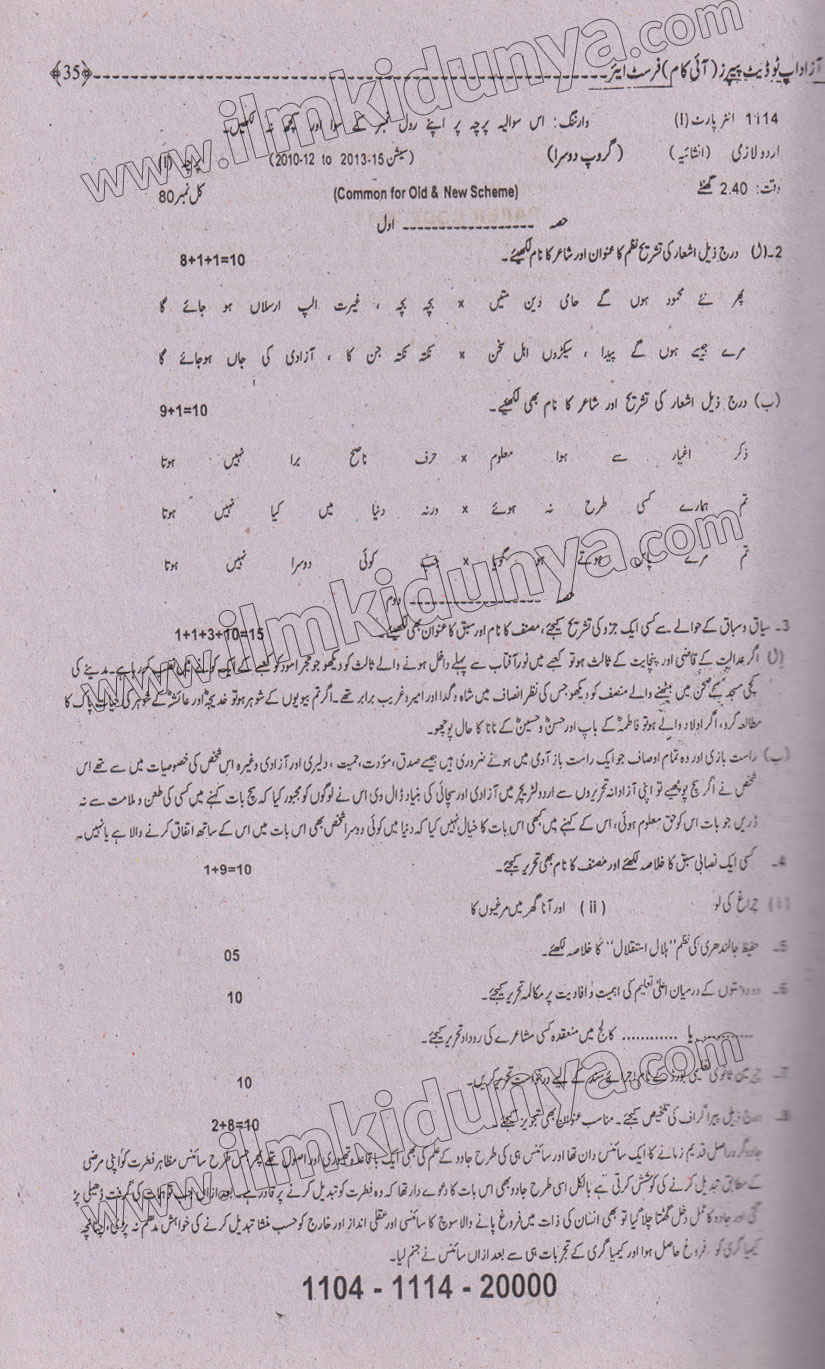 آزاد اپ ٹو ڈیٹ پیپرز (آئی کام) فرسٹ ایئر ---------- ﴿35﴾
1114 انٹر پارٹ (I) وارننگ: اس سوالیہ پرچہ پر اپنے رول نمبر کے سوا اور کچھ نہ لکھیں۔
اردو لازمی (انشائیہ) (گروپ دوسرا) (سیشن 2010-12 to 2013-15) پرچہ (I)
وقت: 2.40 گھنٹے (Common for Old & New Scheme) کل نمبر 80
حصہ ---------- اول
2۔(ال) درج ذیل اشعار کی تشریح نظم کا عنوان اور شاعر کا نام لکھیئے۔ 8+1+1=10
پھر نئے محمود ہوں گے حامی دین متیں x بچہ بچہ ، غیرت الپ ارسلاں ہو جائے گا
مرے جیسے ہوں گے پیدا ، سیکڑوں اہل سخن x نکتہ نکتہ جن کا ، آزادی کی جاں ہوجائے گا
(ب) درج ذیل اشعار کی تشریح اور شاعر کا نام بھی لکھیئے۔ 9+1=10
ذکر اغیار سے ہوا معلوم x حرف ناصح برا نہیں ہوتا
تم ہمارے کسی طرح نہ ہوئے x ورنہ دنیا میں کیا نہیں ہوتا
تم مرے پاس ہوتے ہو گویا x جب کوئی دوسرا نہیں ہوتا
حصہ ---------- دوم
3۔ سیاق و سباق کے حوالے سے کسی ایک جزو کی تشریح کیجئے، مصنف کا نام اور سبق کا عنوان بھی لکھیئے۔ 1+1+3+10=15
(ال) اگر عدالت کے قاضی اور پنچایت کے ثالث ہو تو کعبے میں نور آفتاب سے پہلے داخل ہونے والے ثالث کو دیکھو جو حجر اسود کو کعبے کے ایک کونے میں نصب کر رہا ہے۔ مدینے کی
کچی مسجد کے صحن میں بیٹھنے والے منصف کو دیکھو جس کی نظر انصاف میں شاہ و گدا اور امیر و غریب برابر تھے۔ اگر تم بیویوں کے شوہر ہو تو خدیجہؓ اور عائشہؓ کے شوہر کی حیات پاک کا
مطالعہ کرو، اگر اولاد والے ہو تو فاطمہؓ کے باپ اور حسنؓ و حسینؓ کے نانا کا حال پوچھو۔
(ب) راست بازی اور وہ تمام اوصاف جو ایک راست باز آدمی میں ہونے ضروری ہیں جیسے صدق، مؤدت، حمیت، دلیری اور آزادی وغیرہ اس شخص کی خصوصیات میں سے تھے اس
شخص نے اگر سچ پوچھیے تو اپنی آزادانہ تحریروں سے اردو لٹریچر میں آزادی اور سچائی کی بنیاد ڈال دی اس نے لوگوں کو مجبور کیا کہ سچ بات کہنے میں کسی کی طعن و ملامت سے نہ
ڈریں جو بات اس کو حق معلوم ہوئی، اس کے کہنے میں کبھی اس بات کا خیال نہیں کیا کہ دنیا میں کوئی دوسرا شخص بھی اس بات میں اس کے ساتھ اتفاق کرنے والا ہے یا نہیں۔
4۔ کسی ایک نصابی سبق کا خلاصہ لکھئے اور مصنف کا نام بھی تحریر کیجئے۔ 1+9=10
(i) چراغ کی لو (ii) اور آنا گھر میں مرغیوں کا
5۔ حفیظ جالندھری کی نظم "ہلال استقلال" کا خلاصہ لکھئے۔ 05
6۔ دو دوستوں کے درمیان اعلیٰ تعلیم کی اہمیت و افادیت پر مکالمہ تحریر کیجئے۔ 10
............ یا ............ کالج میں منعقدہ کسی مشاعرے کی روداد تحریر کیجئے۔
7۔ چیرمین ثانوی تعلیمی بورڈ کے نام اجرائے سند کے لیے درخواست تحریر کریں۔ 10
8۔ درج ذیل پیرا گراف کی تلخیص کیجئے۔ مناسب عنوان بھی تجویز کیجئے۔ 2+8=10
جادوگر دراصل قدیم زمانے کا ایک سائنس دان تھا اور سائنس ہی کی طرح جادو کے علم کی بھی ایک باقاعدہ تھیوری اور اصول تھے پھر جس طرح سائنس مظاہر فطرت کو اپنی مرضی
کے مطابق تبدیل کرنے کی کوشش کرتی ہے بالکل اسی طرح جادو بھی اس بات کا دعوے دار تھا کہ وہ فطرت کو تبدیل کرنے پر قادر ہے۔ بعد ازاں جب توہمات کی گرفت ڈھیلی پڑ
گئی اور جادو کا عمل دخل گھٹتا چلا گیا تو بھی انسان کی ذات میں فروغ پانے والا سوچ کا سائنسی اور عقلی انداز اور خارج کو حسب منشا تبدیل کرنے کی خواہش مدھم نہ پڑی، چنانچہ
کیمیا گری کو فروغ حاصل ہوا اور کیمیا گری کے تجربات ہی سے بعد ازاں سائنس نے جنم لیا۔
1104 - 1114 - 20000
www.ilmkidunya.com
www.ilmkidunya.com
www.ilmkidunya.com